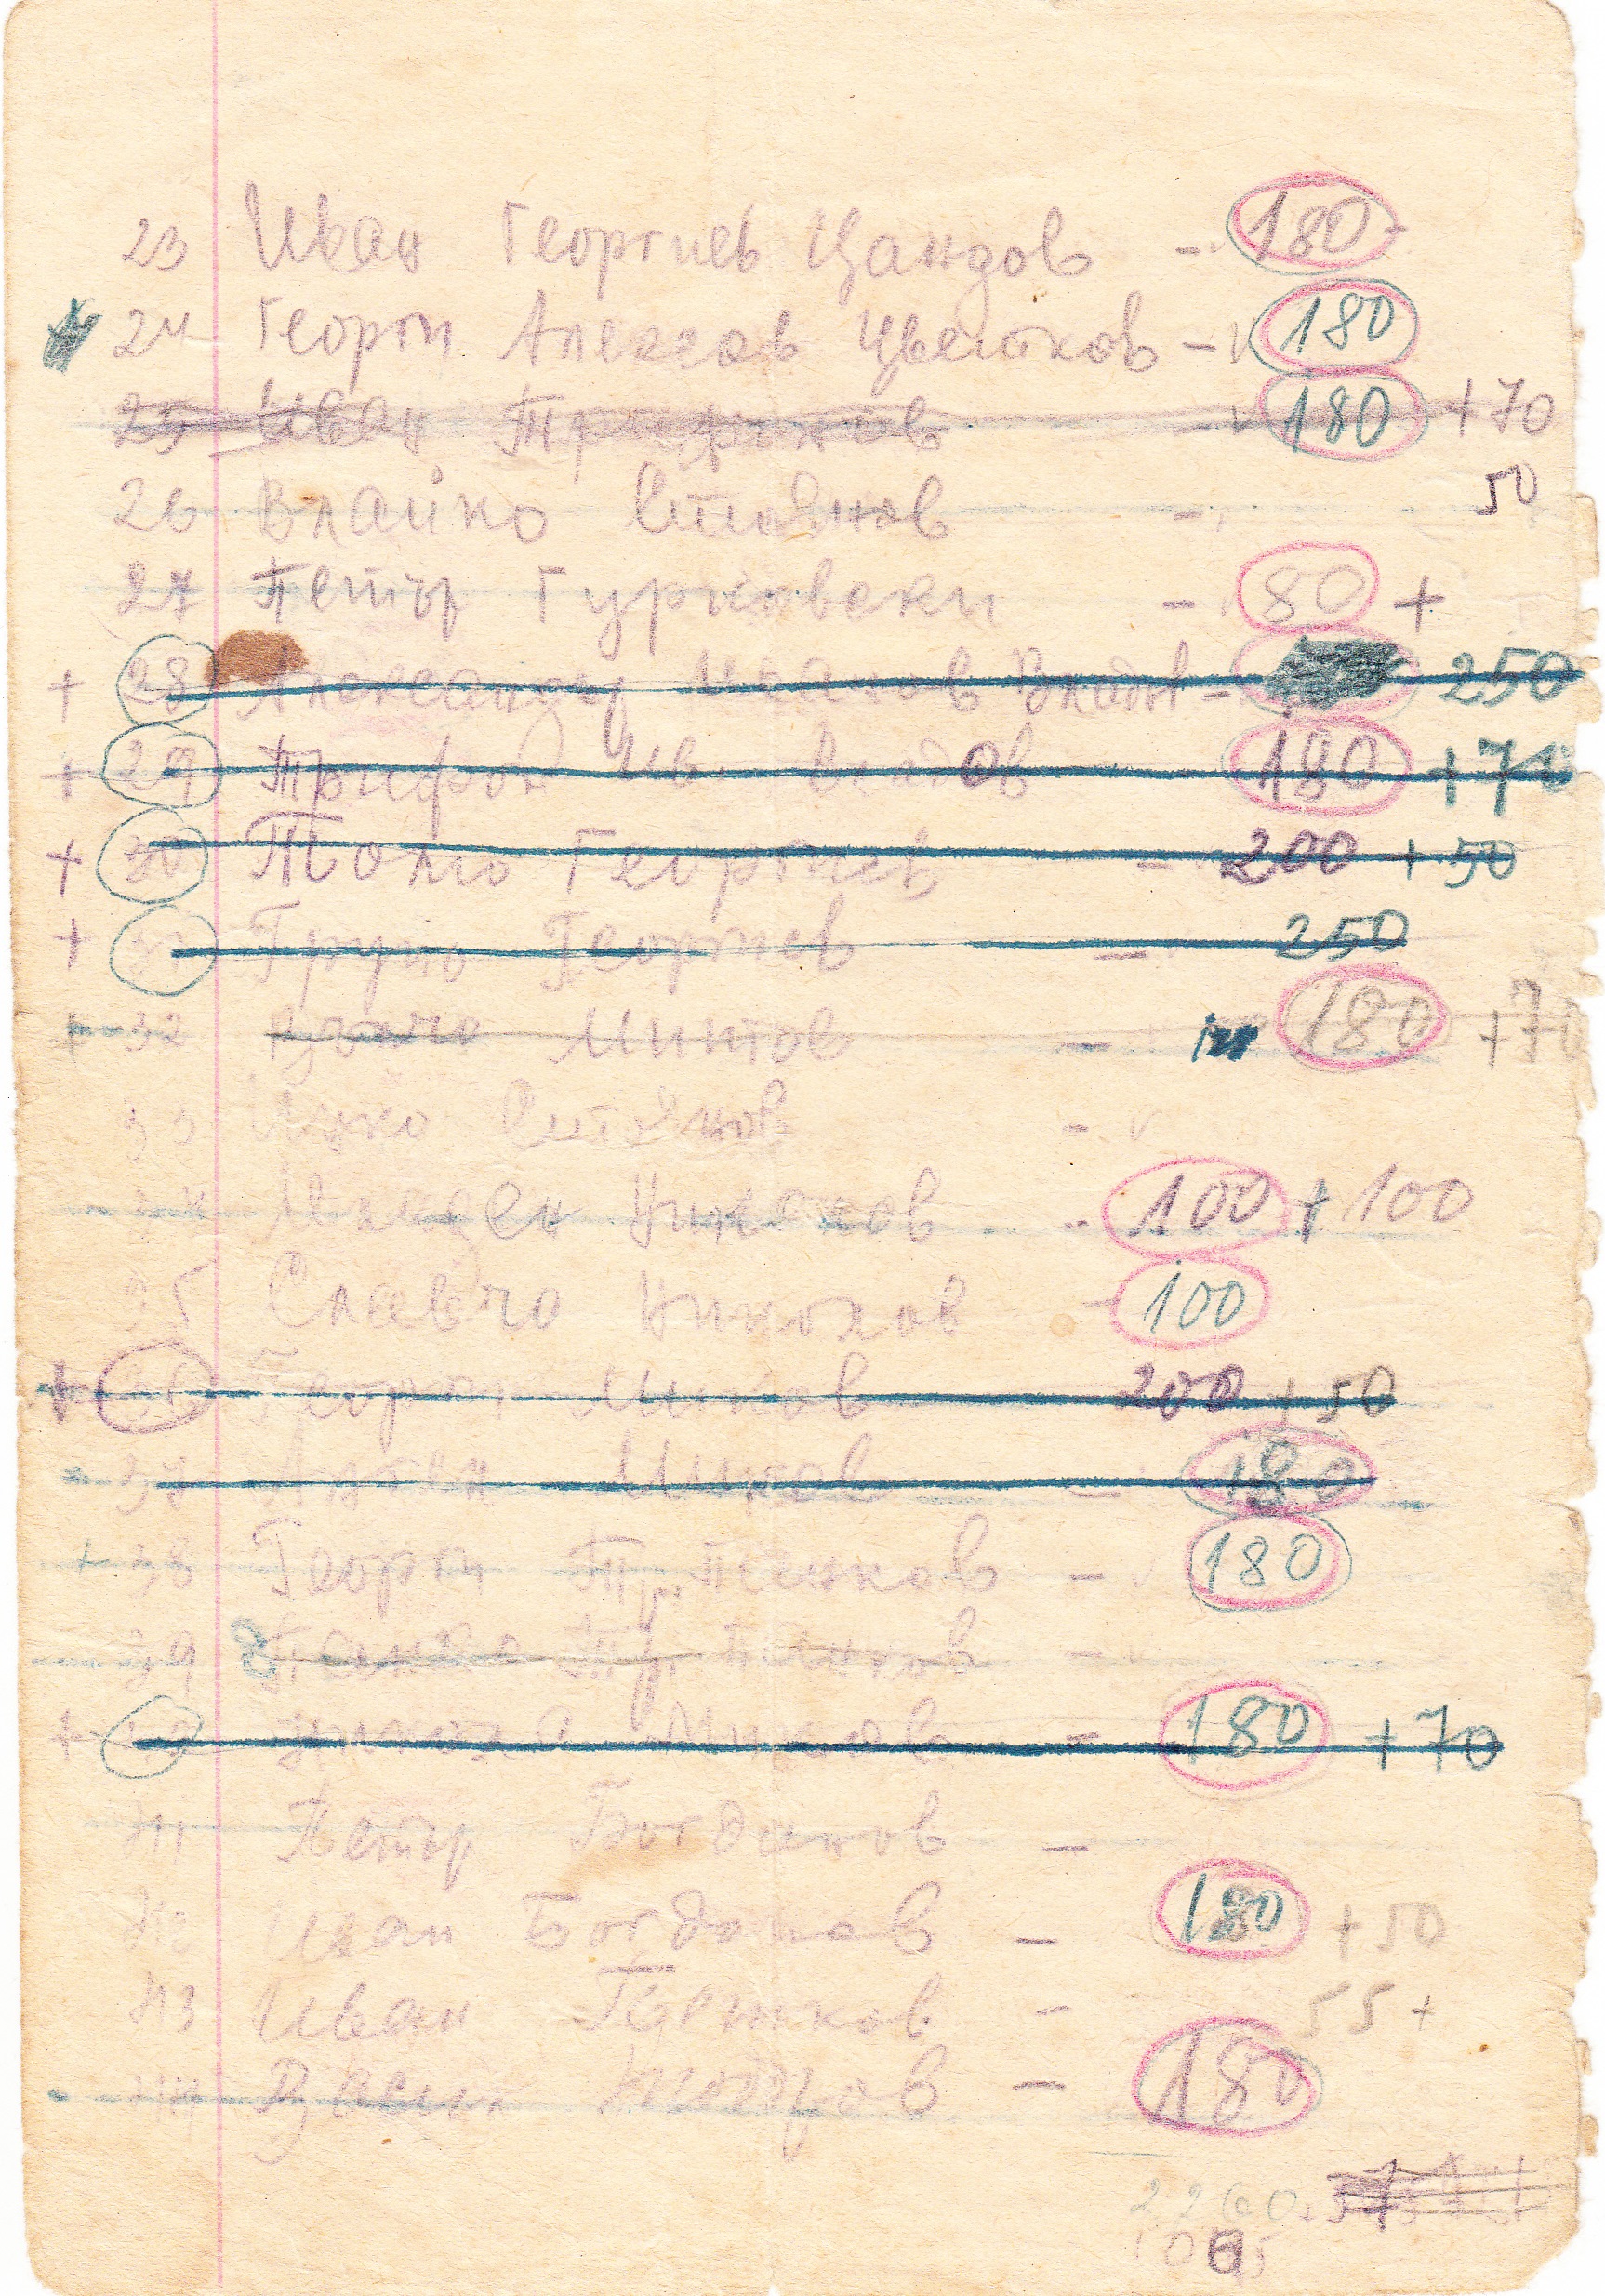 23 Иван Георгиев Цандов - 180
24 Георги Алексов Цветков - 180
25 Иван Трифонов - 180 +70
26 Влайко Стоянов - 50
27 Петър Гурковски - 80 +
+ 28 Александър Иванов - 250
+ 29 Трифон Ив. Владов 180 +70
+ 30 Тошо Георгиев - 200 +50
+ 31 Груйо Георгиев - 250
+ 32 Минтов - 180 +70
33 Цуко Стоянов -
34 Младен Николов - 100 +100
35 Славчо Николов - 100
+ 36 Георги Миков 200 +50
37 Миков - 180
+ 38 Георги Тр. Пенков - 180
39 Тр. Пенков -
+ 40 Никола Миков - 180 +70
41 Петър Богданов -
42 Иван Богданов - 180 +50
43 Иван - 55 +
44 - 180
2260